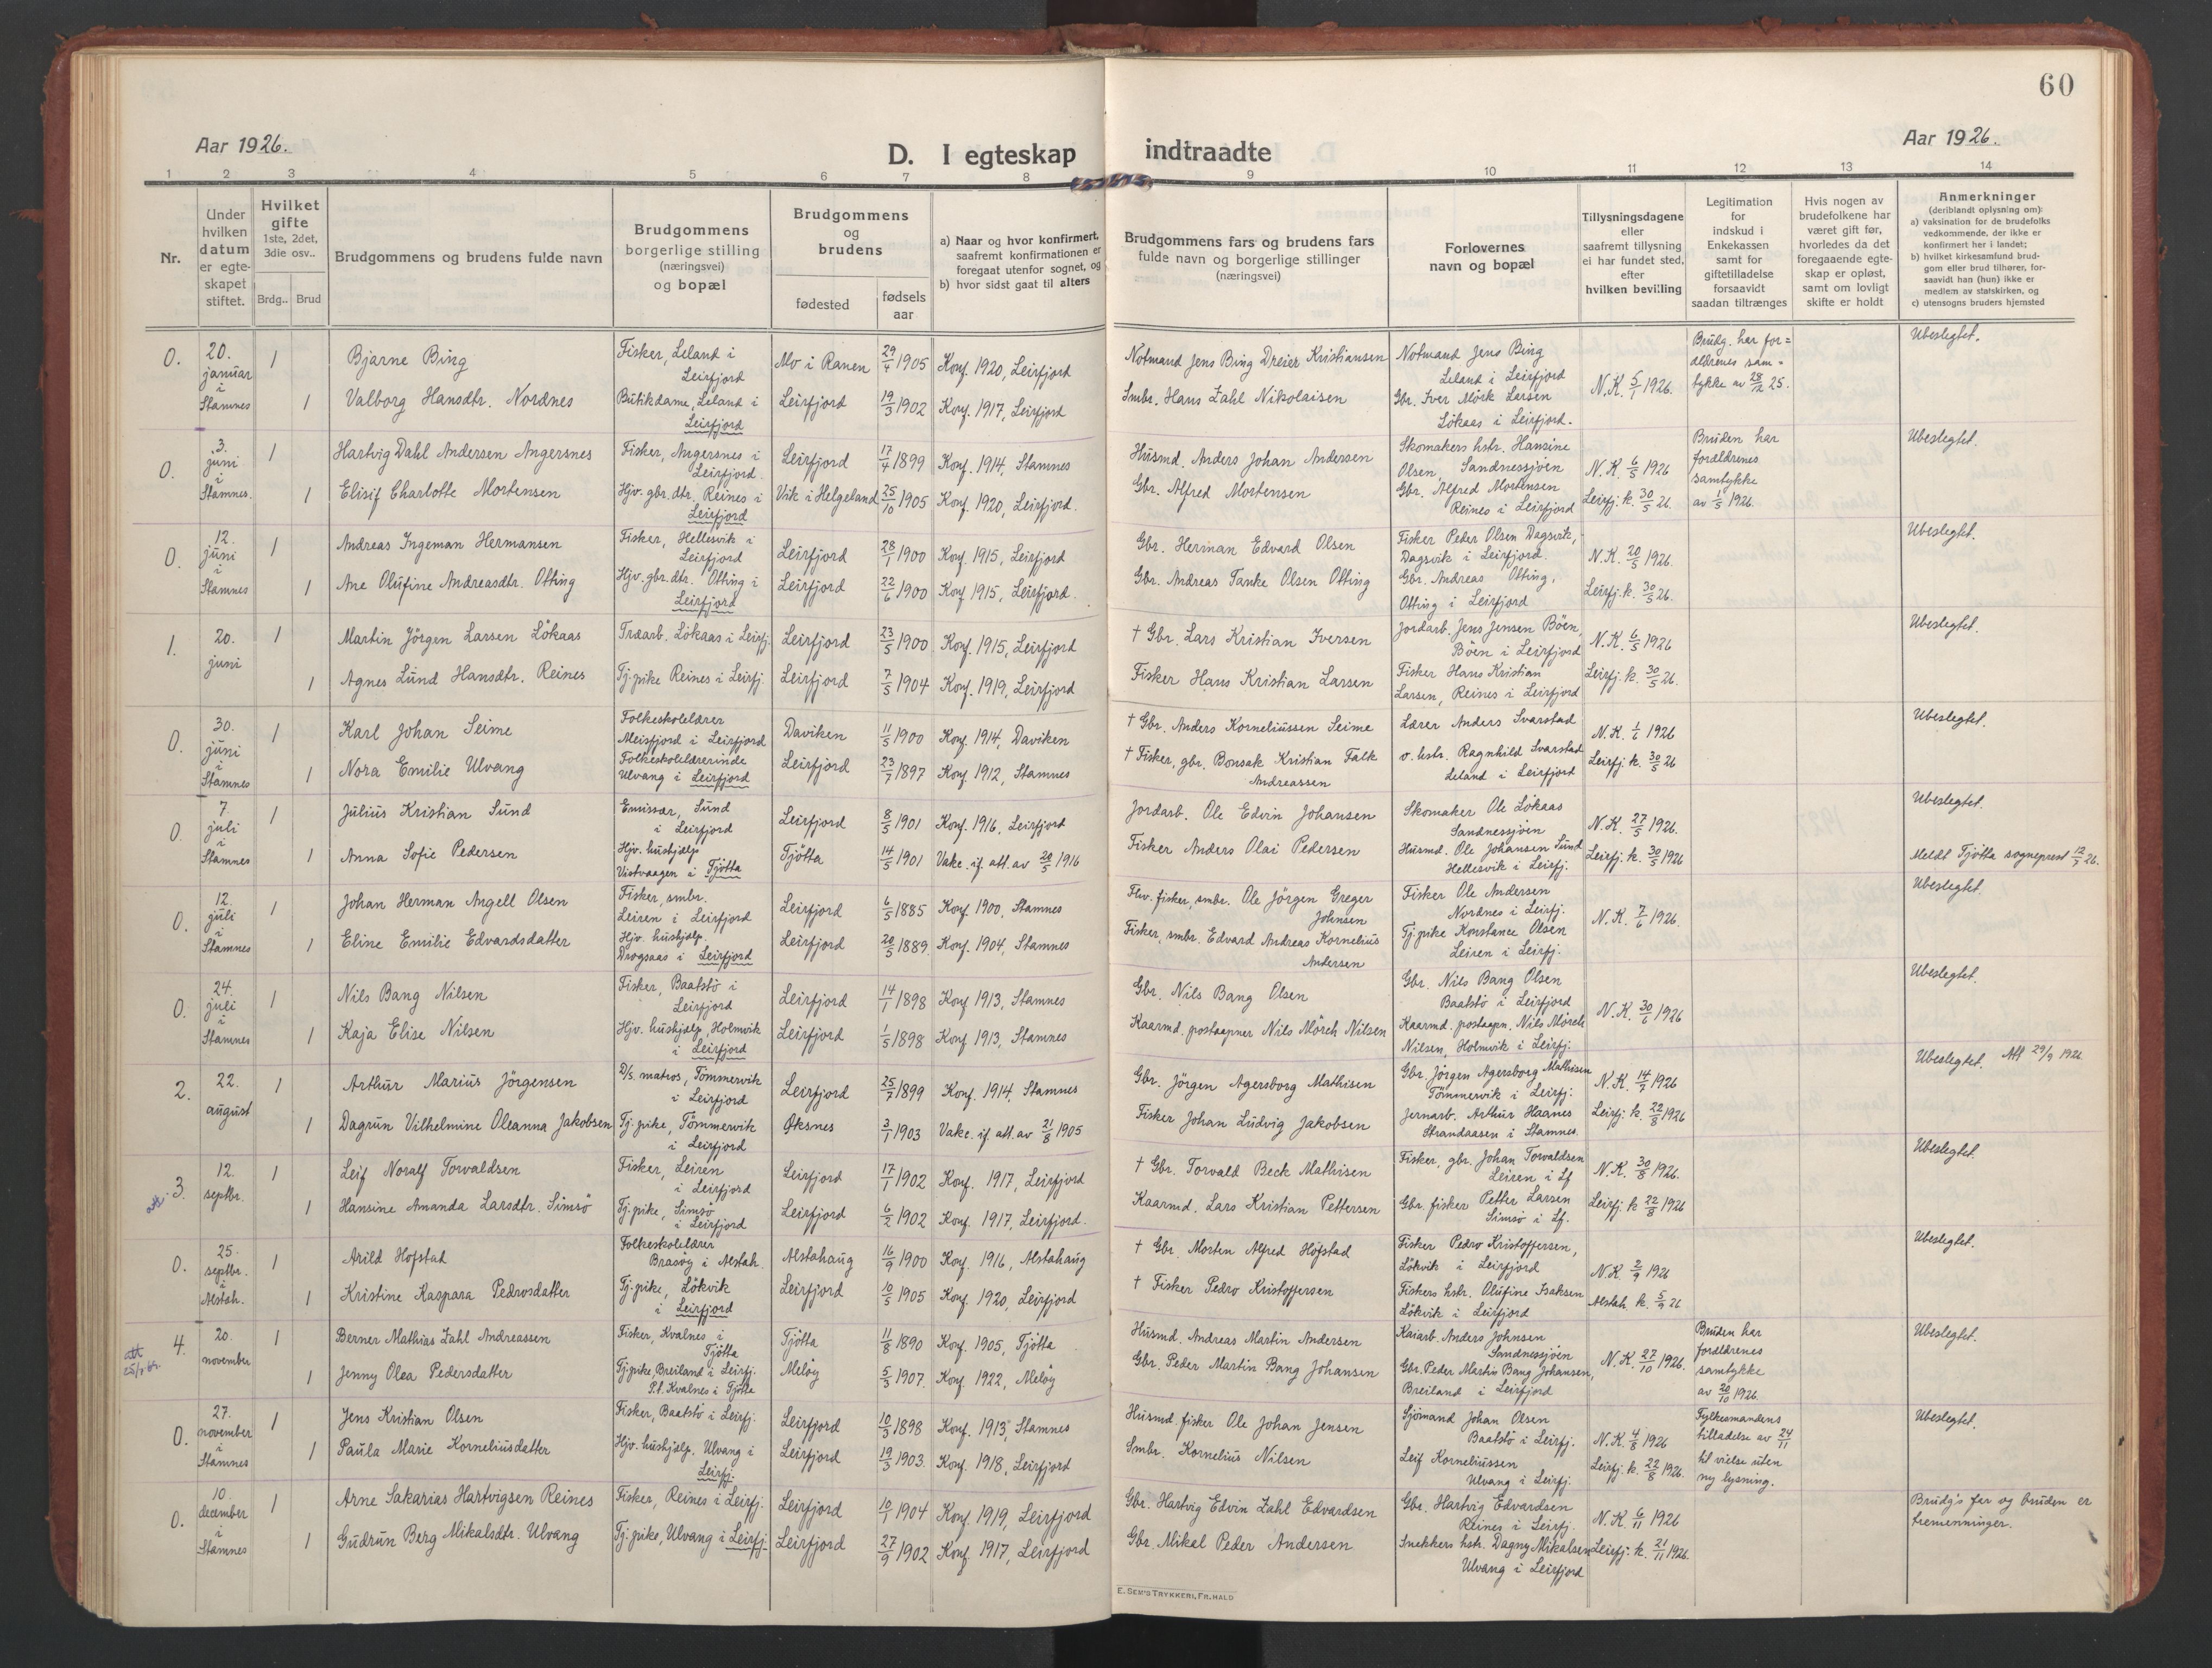 60
Aar 1926.
D. I egteskap indtraadte
Aar 1926.
1 2 3 4 5 6 7 8 9 10 11 12 13 14
Nr.
Under hvilken datum er egteskapet stiftet.
Hvilket gifte 1ste, 2det, 3die osv..
Brdg.. Brud
Brudgommens og brudens fulde navn
Brudgommens borgerlige stilling (næringsvei) og bopæl
Brudgommens og brudens
fødested
fødsels aar
a) Naar og hvor konfirmert, saafremt konfirmationen er foregaat utenfor sognet, og
b) hvor sidst gaat til alters
Brudgommens fars og brudens fars fulde navn og borgerlige stillinger (næringsvei)
Forlovernes navn og bopæl
Tillysningsdagene eller saafremt tillysning ei har fundet sted, efter hvilken bevilling
Legitimation for indskud i Enkekassen samt for giftetilladelse forsaavidt saadan tiltrænges
Hvis nogen av brudefolkene har været gift før, hvorledes da det foregaaende egteskap er opløst, samt om lovligt skifte er holdt
Anmerkninger (deriblandt oplysning om):
a) vaksination for de brudefolks vedkommende, der ikke er konfirmert her i landet;
b) hvilket kirkesamfund brudgom eller brud tilhører, forsaavidt han (hun) ikke er medlem av statskirken, og
c) utensogns bruders hjemsted
0. 20. januar i Stamnes 1 Bjarne Bing Fisker, Leland i Leirfjord Mo i Ranen 29/4 1905 Konf. 1920, Leirfjord Notmand Jens Bing Dreier Kristiansen Notmand Jens Bing Leland i Leirfjord N.K. 5/1 1926. Brudg. har forældrenes samtykke av 28/12 25. Ubeslegtet.
1 Valborg Hansdtr. Nordnes Butikdame, Leland i Leirfjord Leirfjord 19/3 1902 Konf. 1917, Leirfjord Smbr. Hans Zahl Nikolaisen Gbr. Iver Mörk Larsen Lökaas i Leirfjord.
0. 3. juni i Stamnes. 1 Hartvig Dahl Andersen Angersnes Fisker, Angersnes i Leirfjord. Leirfjord 17/4 1899 Konf. 1914, Stamnes Husmd. Anders Johan Andersen Skomakers hstr. Hansine Olsen, Sandnessjöen N.K. 6/5 1926 Bruden har forældrenes samtykke av 1/5 1926. Ubeslegtet.
1 Elisif Charlotte Mortensen Hjv. gbr. dtr. Reines i Leirfjord Vik i Helgeland 25/10 1905 Konf. 1920, Leirfjord. Gbr. Alfred Mortensen Gbr. Alfred Mortensen Reines i Leirfjord Leirfj. k. 30/5 26.
0. 12. juni i Stamnes 1 Andreas Ingeman Hermansen Fisker, Hellesvik i Leirfjord Leirfjord 28/1 1900 Konf. 1915, Leirfjord Gbr. Herman Edvard Olsen Fisker Peder Olsen Dagsvik, Dagsvik i Leirfjord. N.K. 20/5 1926. Ubeslegtet.
1 Ane Olufine Andreasdtr. Otting Hjv. gbr. dtr. Otting i Leirfjord Leirfjord 22/6 1900 Konf. 1915, Leirfjord. Gbr. Andreas Tanke Olsen Otting Gbr. Andreas Otting, Otting i Leirfjord Leirfj. k. 30/5 26.
1. 20. juni 1 Martin Jörgen Larsen Lökaas Træarb. Lökaas i Leirfj. Leirfjord 23/5 1900 Konf. 1915, Leirfjord † Gbr. Lars Kristian Iversen Jordarb. Jens Jensen Böen, Böen i Leirfjord N.K. 6/5 1926 Ubeslegtet.
1 Agnes Lund Hansdtr. Reines Tj. pike Reines i Leirfj. Leirfjord 7/5 1904 Konf. 1919, Leirfjord Fisker Hans Kristian Larsen Fisker Hans Kristian Larsen, Reines i Leirfjord Leirfj. k. 30/5 26.
0. 30. juni i Stamnes 1 Karl Johan Seime Folkeskolelærer Meisfjord i Leirfjord Daviken 11/5 1900 Konf. 1914, Daviken † Gbr. Anders Korneliussen Seime Lærer Anders Svarstad N.K. 1/6 1926 Ubeslegtet.
1 Nora Emilie Ulvang Folkeskolelærerinde Ulvang i Leirfjord Leirfjord 23/7 1897 Konf. 1912, Stamnes † Fisker, gbr. Bonsak Kristian Falk Andreassen o. hstr. Ragnhild Svarstad Leland i Leirfjord Leirfj. k. 30/5 26
0. 7. juli i Stamnes 1 Julius Kristian Sund Emissær, Sund i Leirfjord Leirfjord 8/5 1901 Konf. 1916, Leirfjord Jordarb. Ole Edvin Johansen Skomaker Ole Lökaas Sandnessjöen N.K. 27/5 1926. Ubeslegtet.
1 Anna Sofie Pedersen Hjv. hushjælp Vistvaagen i Tjötta Tjötta 14/5 1901 Vakc. if. att. av 20/5 1916 Fisker Anders Olai Pedersen Husmd. Ole Johansen Sund Hellesvik i Leirfj. Leirfj. k. 30/5 1926 Meldt Tjötta sogneprest 12/7 26.
0. 12. juli i Stamnes 1 Johan Herman Angell Olsen Fisker, smbr. Leiren i Leirfjord Leirfjord 6/5 1885 Konf. 1900, Stamnes Flw. fisker, smbr. Ole Jörgen Greger Johnsen Fisker Ole Andersen Nordnes i Leirfj. N.K. 7/6 1926. Ubeslegtet.
1 Eline Emilie Edvardsdatter Hjv. hushjælp. Drogsaas i Leirfjord Leirfjord 20/5 1889. Konf. 1904, Stamnes Fisker, smbr. Edvard Andreas Kornelius Andersen Tj. pike Konstance Olsen Leiren i Leirfj.
0. 24. juli i Stamnes 1 Nils Bang Nilsen Fisker, Baatstö i Leirfjord Leirfjord 14/1 1898 Konf. 1913, Stamnes Gbr. Nils Bang Olsen Gbr. Nils Bang Olsen Baatstö i Leirfjord N.K. 30/6 1926 Ubeslegtet.
1 Kaja Elise Nilsen Hjv. hushjælp, Holmvik i Leirfjord Leirfjord 1/5 1898 Konf 1913, Stamnes Kaarmd. postaapner Nils Mörch Nilsen Kaarmd. postaapn. Nils Mörch Nilsen, Holmvik i Leirfj.
2. 22. august 1 Arthur Marius Jörgensen D/s. matros, Tömmervik i Leirfjord Leirfjord 25/7 1899 Konf. 1914, Stamnes Gbr. Jörgen Agersborg Mathisen Gbr. Jörgen Agersborg Mathisen Tömmervik i Leirfj. N.K. 14/7 1926 Ubeslegtet. Att 29/9 1926
1 Dagrun Vilhelmine Oleanna Jakobsen Tj. pike, Tömmervik i Leirfjord Øksnes 3/1 1903 Vakc. if. att. av 21/8 1905 Fisker Johan Ludvig Jakobsen Jernarb. Arthur Haanes Strandaasen i Stamnes. Leirfj. k. 22/8 1926
att. 3. 12. septbr. 1 Leif Noralf Torvaldsen Fisker, Leiren i Leirfjord Leirfjord 17/1 1902 Konf. 1917, Leirfjord † Gbr. Torvald Beck Mathisen Fisker, gbr. Johan Torvaldsen Leiren i Lf N.K. 30/8 1926. Ubeslegtet.
1 Hansine Amanda Larsdtr. Simsö Tj. pike, Simsö i Leirfjord Leirfjord 6/2 1902 Konf. 1917, Leirfjord. Kaarmd. Lars Kristian Pettersen Gbr. fisker Petter Larsen Simsö i Lf. Leirfj. k 22/8 1926
0. 25. septbr. i Alstah. 1 Arild Hofstad Folkeskolelærer Brasöy i Alstah. Alstahaug 16/9 1900 Konf. 1916, Alstahaug † Gbr. Morten Alfred Hofstad Fisker Pedro Kristoffersen, Lökvik i Leirfjord N.K. 2/9 1926 Ubeslegtet.
1 Kristine Kaspara Pedrosdatter Tj. pike, Lökvik i Leirfjord Leirfjord 10/5 1905 Konf. 1920, Leirfjord † Fisker Pedro Kristoffersen Fiskers hstr. Olufine Isaksen Lökvik i Leirfjord Alstah. k. 5/9 26
att 4. 20. november 1 Berner Mathias Zahl Andreassen Fisker, Kvalnes i Tjötta Tjötta 11/8 1890 Konf. 1905, Tjötta Husmd. Andreas Martin Andersen Kaiarb. Anders Johnsen Sandnessjöen N.K. 27/10 1926. Bruden har forældrenes samtykke av 20/10 1926. Ubeslegtet.
1 Jenny Olea Pedersdatter Tj. pike, Breiland i Leirfj. P.t. Kvalnes i Tjötta Meløy 5/3 1907. Konf. 1922, Meløy Gbr. Peder Martin Bang Johansen Gbr. Peder Martin Bang Johansen, Breiland i Leirfjord
0. 27. november i Stamnes 1 Jens Kristian Olsen Fisker, Baatstö i Leirfj. Leirfjord 10/3 1898 Konf. 1913, Stamnes Husmd. fisker Ole Johan Jensen Sjömand Johan Olsen Baatstö i Leirfj. N.K. 4/8 1926 Fylkesmandens tilladelse av 24/11 til vielse uten ny lysning. Ubeslegtet.
1 Paula Marie Korneliusdatter Hjv. hushjælp. Ulvang i Leirfj. Leirfjord 19/3 1903. Konf. 1918, Leirfjord Smbr. Kornelius Nilsen Leif Korneliussen Ulvang i Leirfj. Leirfj. k. 22/8 1926.
0. 10. december i Stamnes 1 Arne Sakarias Hartvigsen Reines Fisker, Reines i Leirfj. Leirfjord 10/1 1904 Konf. 1919, Leirfjord Gbr. Hartvig Edvin Zahl Edvardsen Gbr. Hartvig Edvardsen Reines i Leirfj. N.K. 6/11 1926 Brudg's far og bruden er tremenninger.
1 Gudrun Berg Mikalsdtr. Ulvang Tj. pike, Ulvang i Leirfj. Leirfjord 27/9 1902 Konf. 1917, Leirfjord Gbr. Mikal Peder Andersen Snekkers hstr. Dagny Mikalsen Ulvang i Leirfjord Leirfj. k. 21/11 1926.
E. SEM'S TRYKKERI, FR.HALD